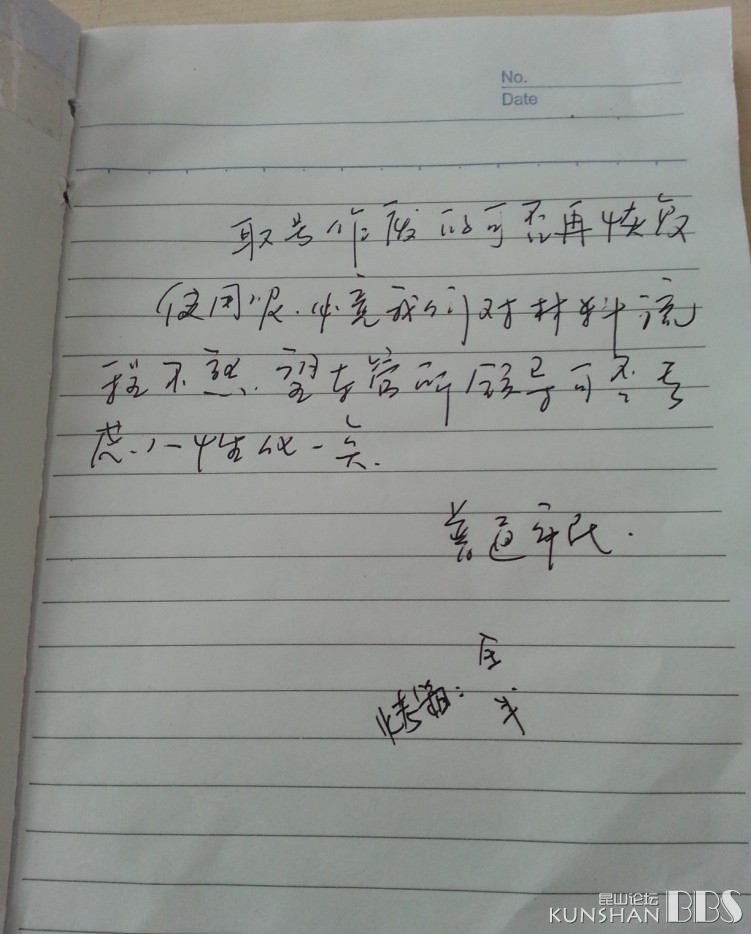 No.
Date
取号作废的可否再恢复
使用呢.毕竟我们对材料流
程不熟.望车管所领导可否考
虑.人性化一点.
普通市民.
昆山论坛
KUNSHAN BBS